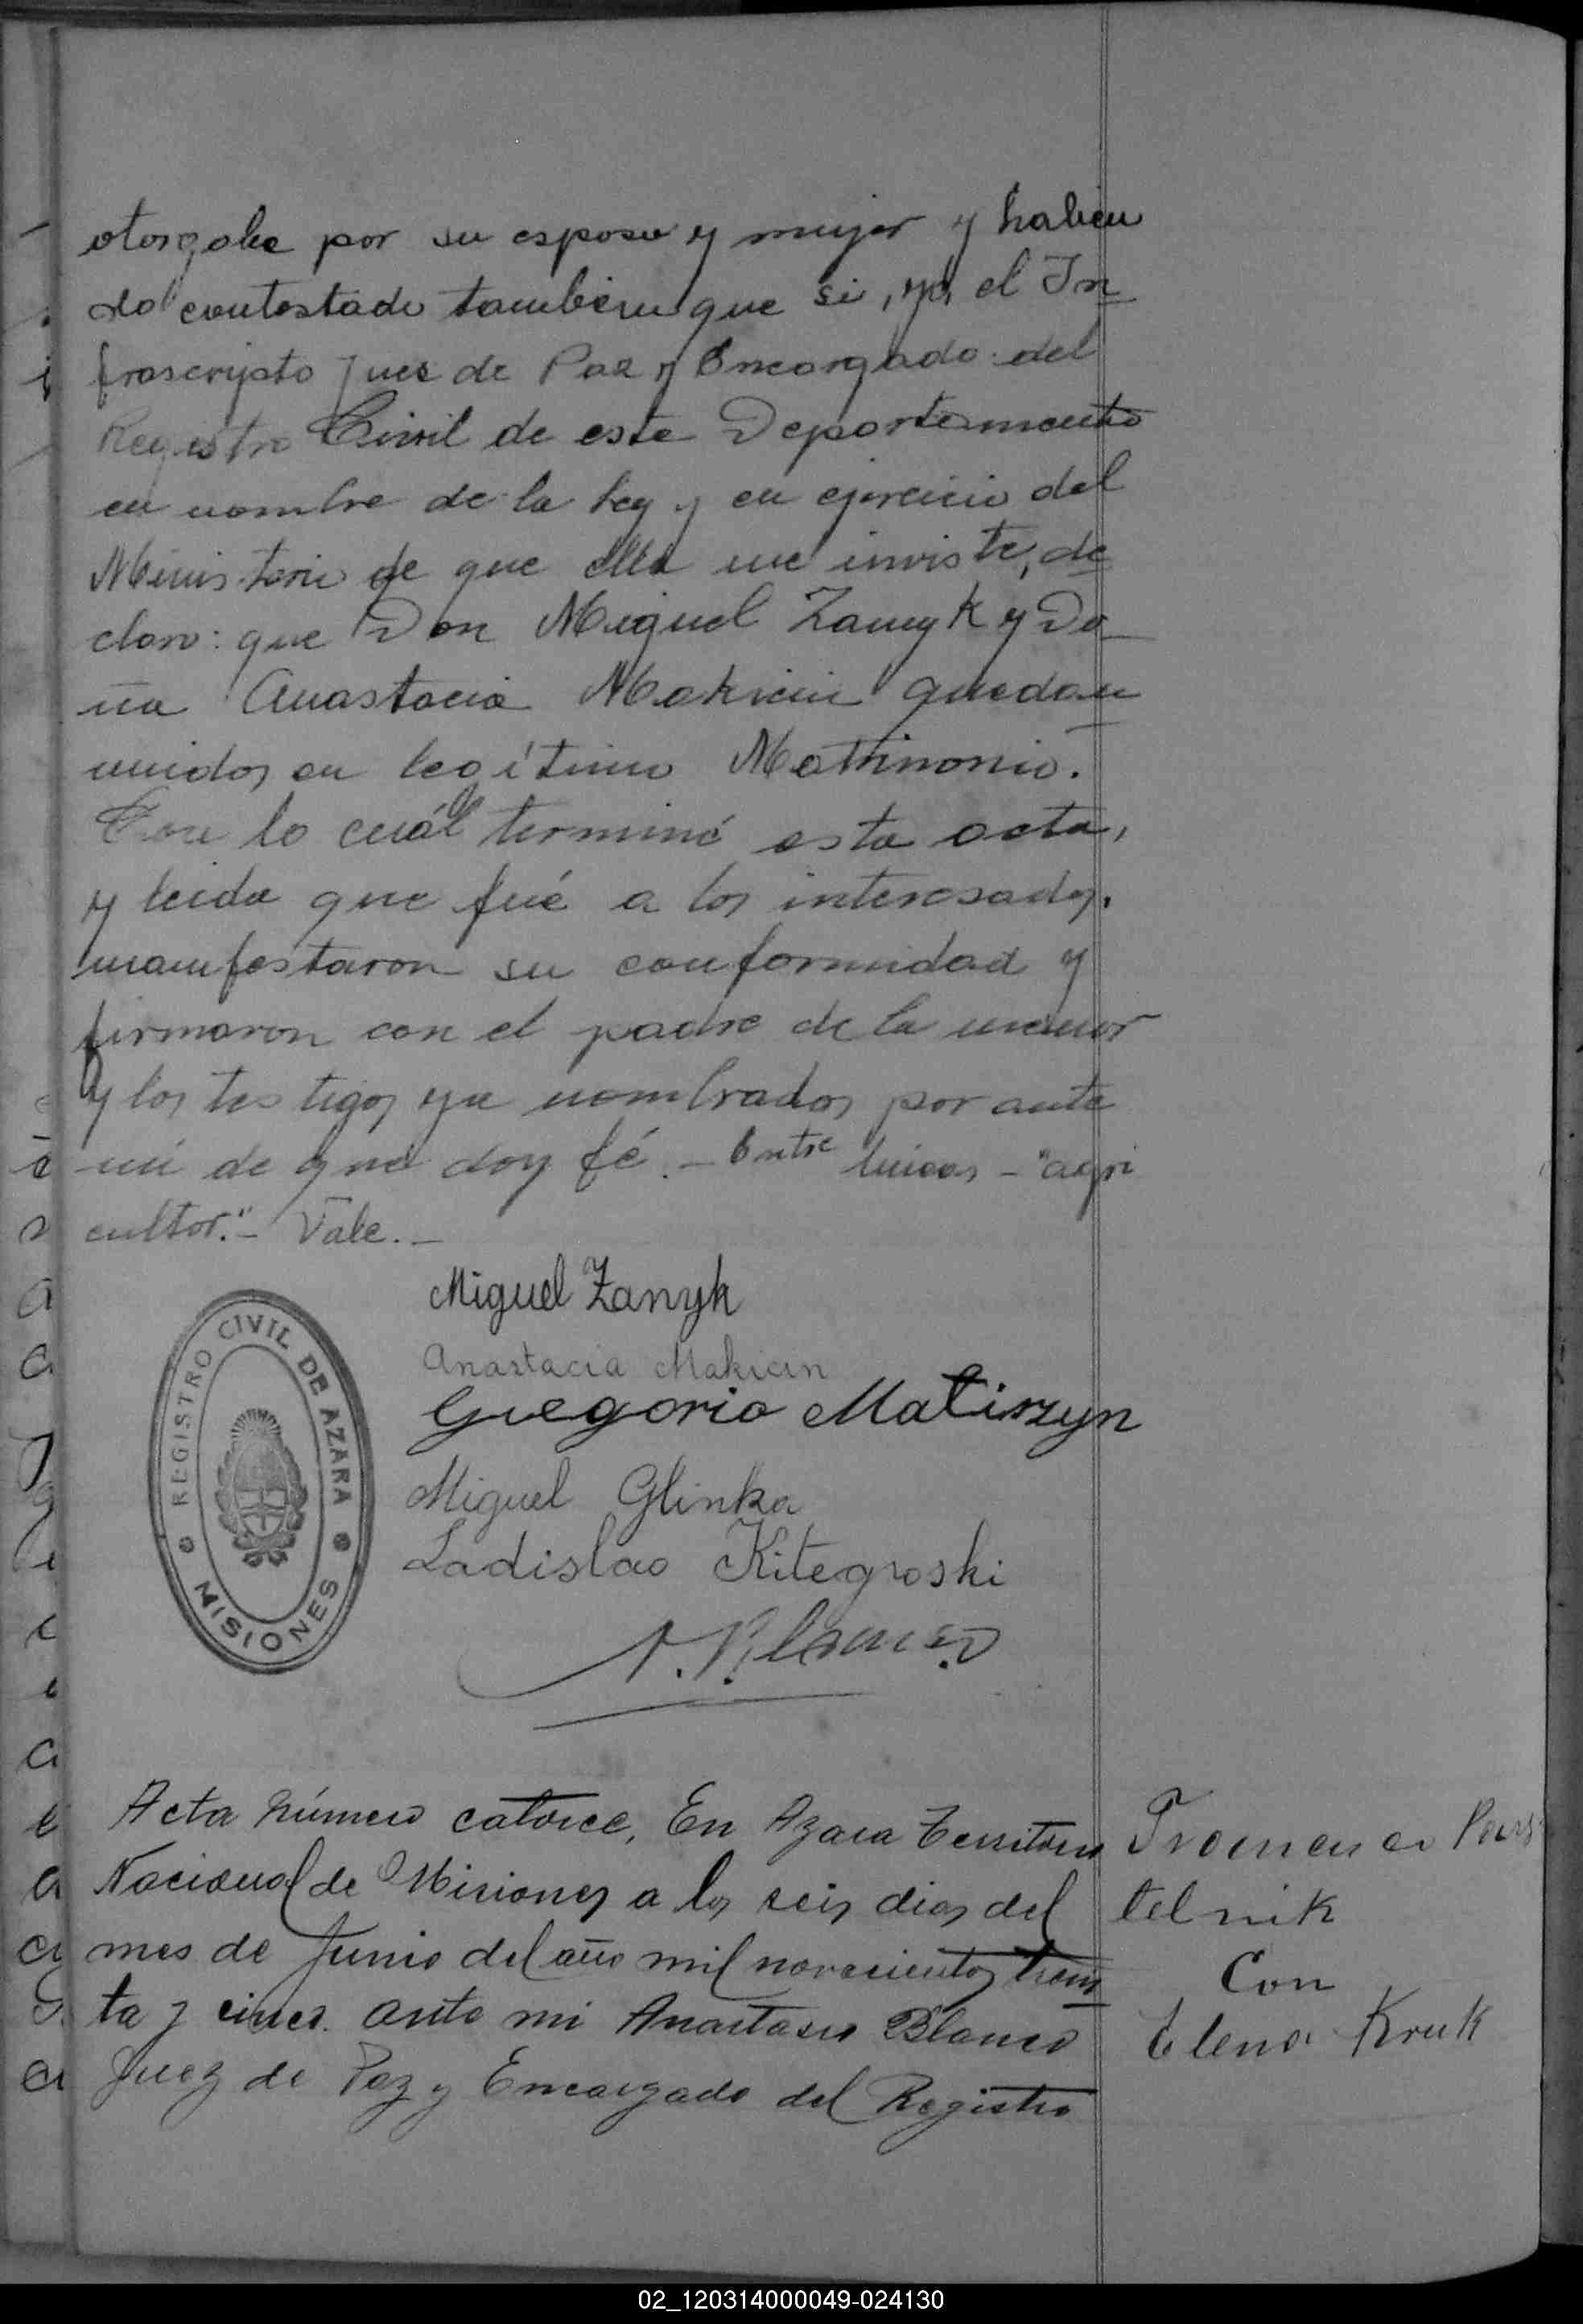 otorgale por su esposa y mujer y habien
do contestado tambien que si, yo, el In
frascripto Juez de Paz y Encargado del
Registro Civil de este Departamento
en nombre de la ley y en ejercicio del
Ministerio de que ella me inviste, de
claro: que Don Miguel Zanyk y Do
ña Anastacia Makicin quedan
unidos en legítimo Matrimonio.
Con lo cuál terminó esta acta,
y leida que fué a los interesados,
manifestaron su conformidad y
firmaron con el padre de la menor
y los testigos ya nombrados por ante
mi de que doy fé. - Entre lineas - "agri
cultor." - Vale. -
Miguel Zanyk
Anastacia Makicin
Gregorio Matiszyn
Miguel Glinka
Ladislao Kitegroski
A. Blanco
REGISTRO CIVIL DE AZARA
MISIONES
Acta número catorce, En Azara Territorio
Nacional de Misiones a los seis dias del
mes de Junio del año mil novecientos trein
ta y cinco. ante mi Anastasio Blanco
Juez de Paz y Encargado del Registro
telnik
Con
Elena Kruk
02_120314000049-024130